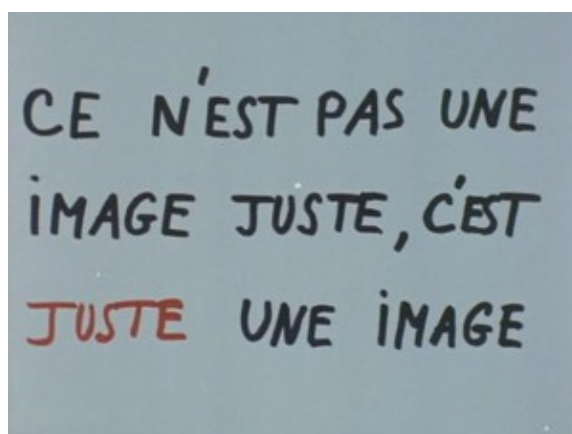 CE N'EST PAS UNE
IMAGE JUSTE, C'EST
JUSTE UNE IMAGE